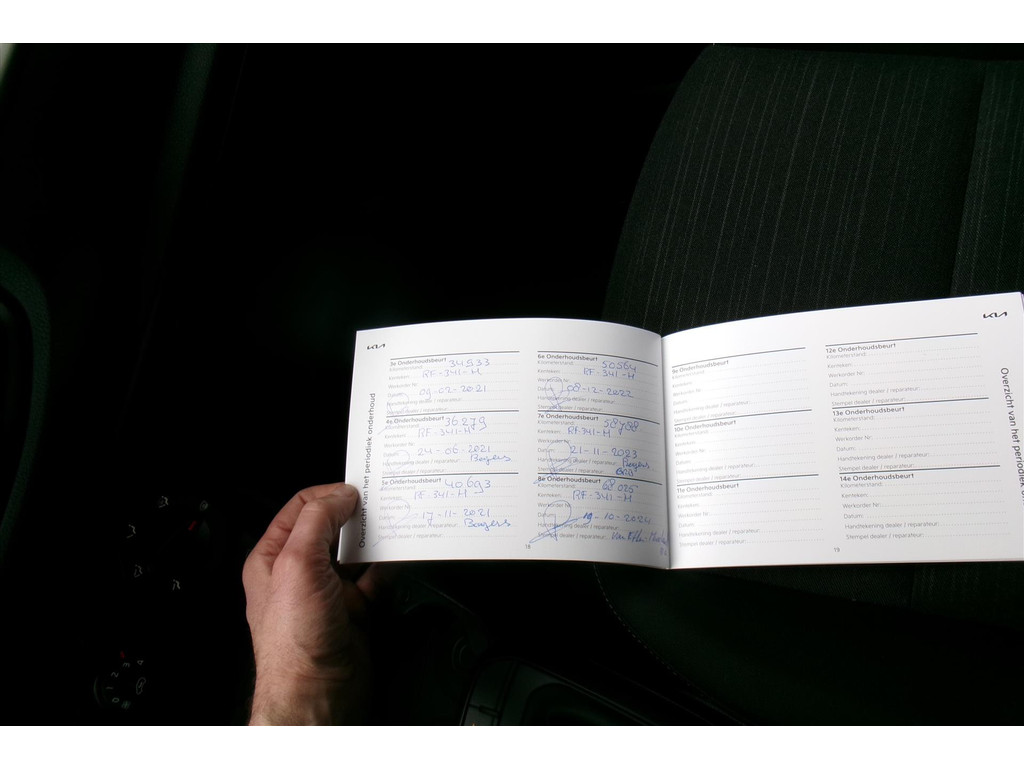 KIA
Overzicht van het periodiek onderhoud
3e Onderhoudsbeurt
Kilometerstand: 34533
Kenteken: RF-341-H
Werkorder Nr:
Datum: 09-02-2021
Handtekening dealer / reparateur:
Stempel dealer / reparateur:
4e Onderhoudsbeurt
Kilometerstand: 36279
Kenteken: RF-341-H
Werkorder Nr:
Datum: 24-06-2021
Handtekening dealer / reparateur:
Stempel dealer / reparateur:
5e Onderhoudsbeurt
Kilometerstand: 40693
Kenteken: RF-341-H
Werkorder Nr:
Datum: 17-11-2021
Handtekening dealer / reparateur:
Stempel dealer / reparateur:
6e Onderhoudsbeurt
Kilometerstand: 50564
Kenteken: RF-341-H
Werkorder Nr:
Datum: 08-12-2022
Handtekening dealer / reparateur:
Stempel dealer / reparateur:
7e Onderhoudsbeurt
Kilometerstand:
Kenteken: RF-341-H
Werkorder Nr:
Datum: 21-11-2023
Handtekening dealer / reparateur:
Stempel dealer / reparateur:
8e Onderhoudsbeurt
Kilometerstand: 68025
Kenteken: RF-341-H
Werkorder Nr:
Datum: 19-10-2024
Handtekening dealer / reparateur:
Stempel dealer / reparateur:
18
9e Onderhoudsbeurt
Kilometerstand:
Kenteken:
Werkorder Nr:
Datum:
Handtekening dealer / reparateur:
Stempel dealer / reparateur:
10e Onderhoudsbeurt
Kilometerstand:
Kenteken:
Werkorder Nr:
Datum:
Handtekening dealer / reparateur:
Stempel dealer / reparateur:
11e Onderhoudsbeurt
Kilometerstand:
Kenteken:
Werkorder Nr:
Datum:
Handtekening dealer / reparateur:
Stempel dealer / reparateur:
12e Onderhoudsbeurt
Kilometerstand:
Kenteken:
Werkorder Nr:
Datum:
Handtekening dealer / reparateur:
Stempel dealer / reparateur:
13e Onderhoudsbeurt
Kilometerstand:
Kenteken:
Werkorder Nr:
Datum:
Handtekening dealer / reparateur:
Stempel dealer / reparateur:
14e Onderhoudsbeurt
Kilometerstand:
Kenteken:
Werkorder Nr:
Datum:
Handtekening dealer / reparateur:
Stempel dealer / reparateur:
19
KIA
Overzicht van het periodiek on
0 1 2 3 4